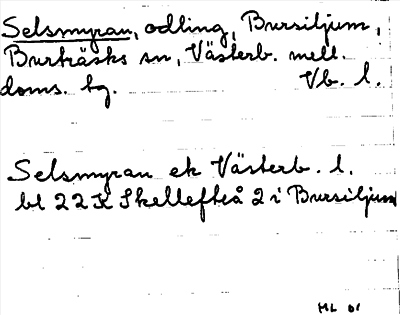 Selsmyran, odling, Bursiljum,
Burträsks sn, Västerb. mell.
doms. tg. Vb. l.
Selsmyran ek Västerb. l.
bl 22K Skellefteå 2 i Bursiljum
ML 01